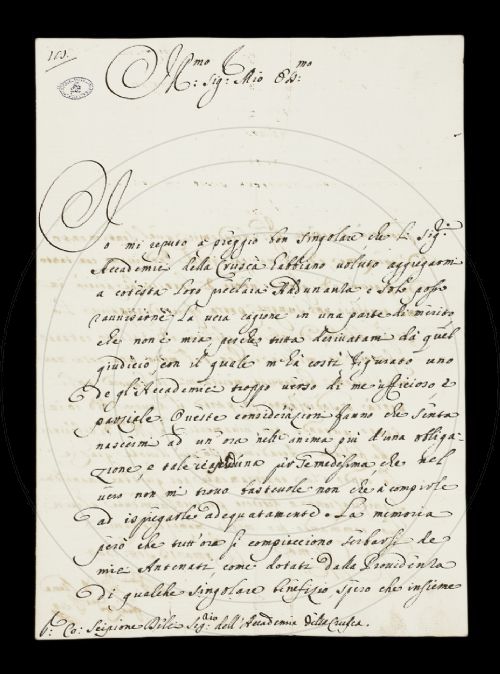 103.
Ill.mo Sig: Mio Oss:mo
Io mi reputo a preggio ben singolare che li Sig.ri
Accademici della Crusca habbiano voluto aggregarmi
a cotesta loro preclara Adunanza e solo posso
ravvisarne la vera cagione in una parte di merito
che non è mia perche tutta derivatami dà quel
giudicio con il quale m'hà costì figurato uno
de gli Accademici troppo verso di me ufficioso, e
parziale. Queste considerazioni fanno che senta
nascermi ad un'ora nell'animo più d'una obliga-
zione, e tale ciascheduna per se medesima che nel
vero non mi trovo bastevole non che à compirle
ad ispiegarle adequatamente. La memoria
però che tutt'ora si compiacciono serbarsi de
miei Antenati, come dotati dalla Providenza
di qualche singolare benefizio, spero che insieme
S: Co: Scipione Seg.rio dell'Accademia della Crusca.